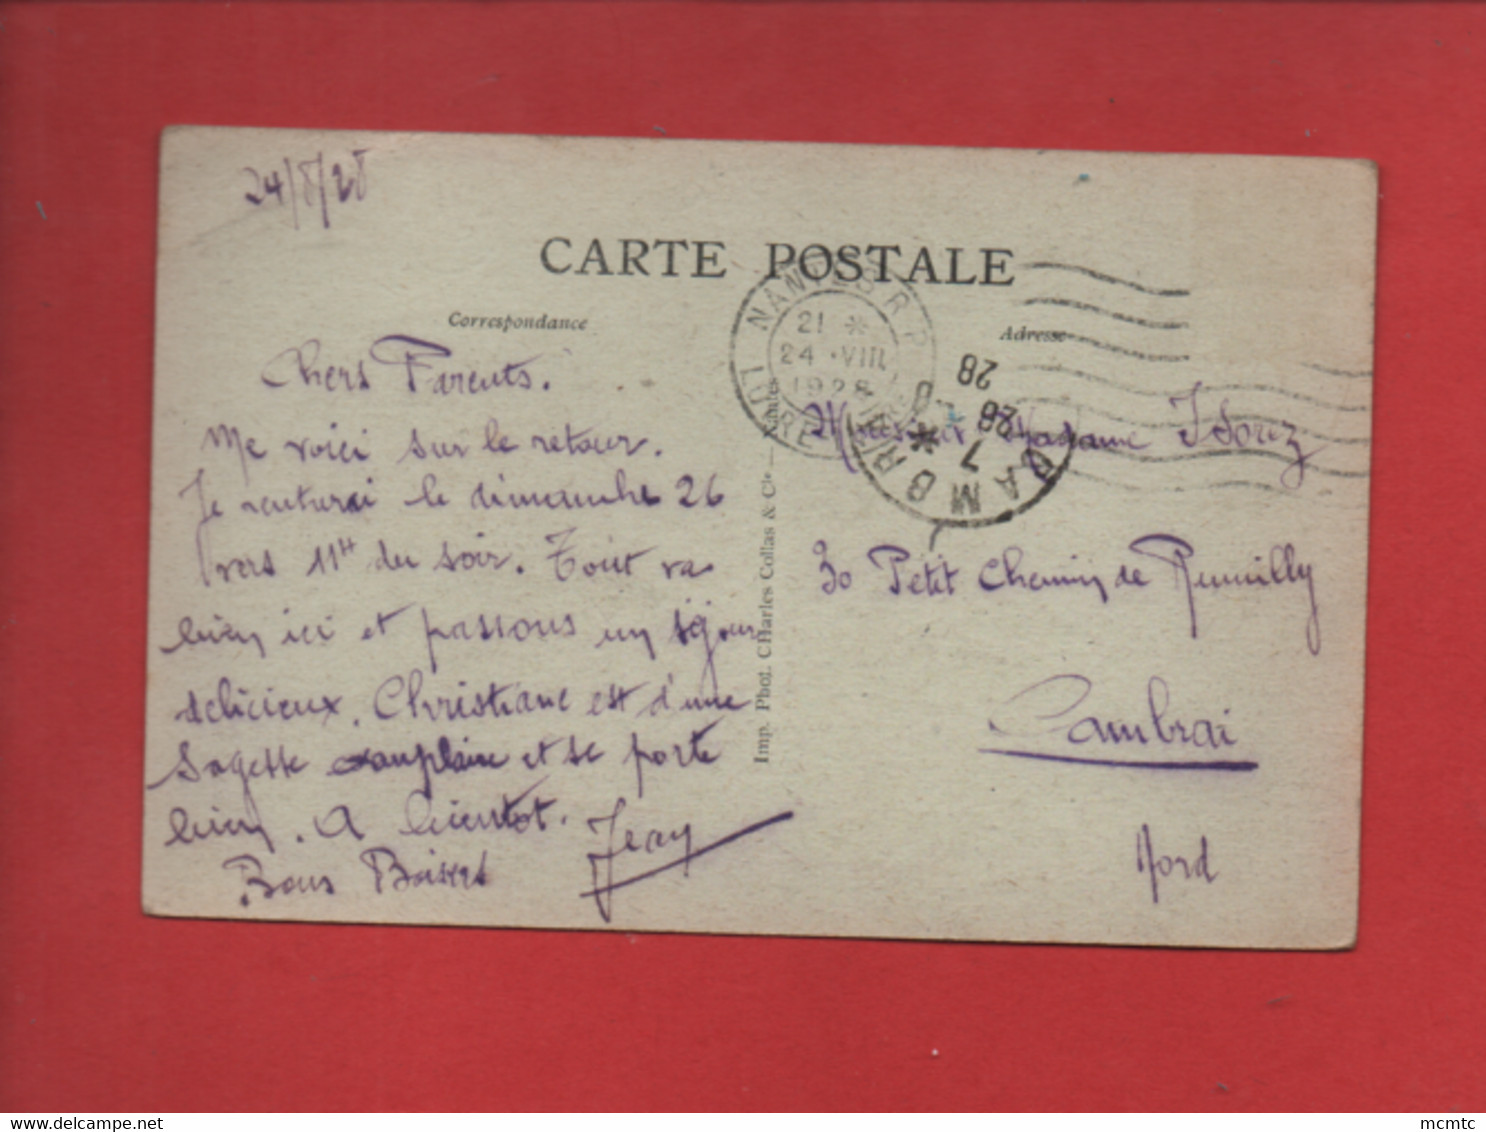 24/8/28
CARTE POSTALE
Correspondance
Adresse
NANTES R.P.
21 *
24 · VIII
1928
LOIRE
CAMBRAI
7 *
28 - 8
28
Chers Parents.
Me voici sur le retour.
Je rentrerai le dimanche 26
vers 11H du soir. Tout va
bien ici et passons un séjour
delicieux. Christiane est d'une
sagesse exemplaire et se porte
bien. A bientot.
Bons Baisers Jean
Imp. Phot. Charles Collas & Cie — Nantes
Monsieur Madame
30 Petit Chemin de Rumilly
Cambrai
Nord
mcmtc